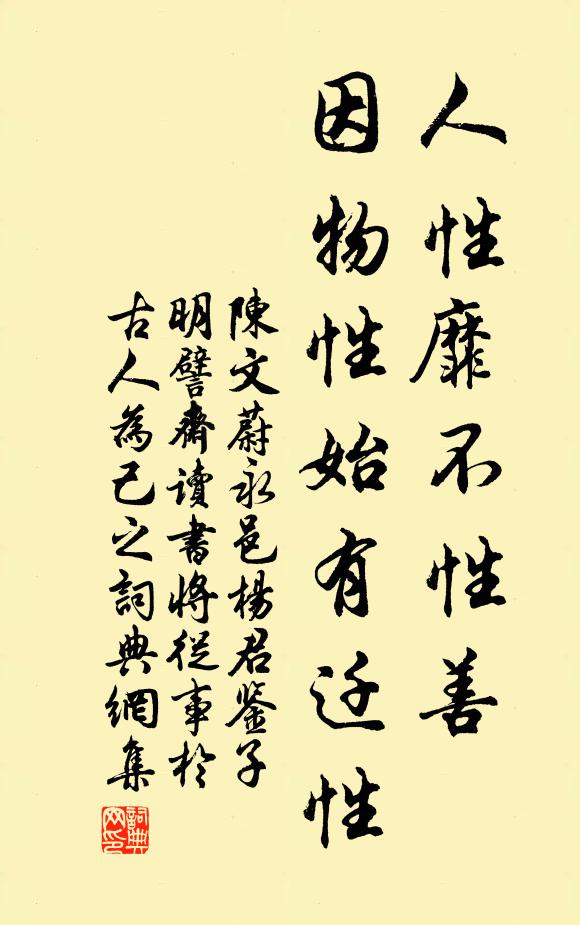 人性靡不性善
因物性始有迁性
陳文蔚永邑楊君鉴子
明譬齋读書將從事於
古人為己之詞典網集
詞典
网印